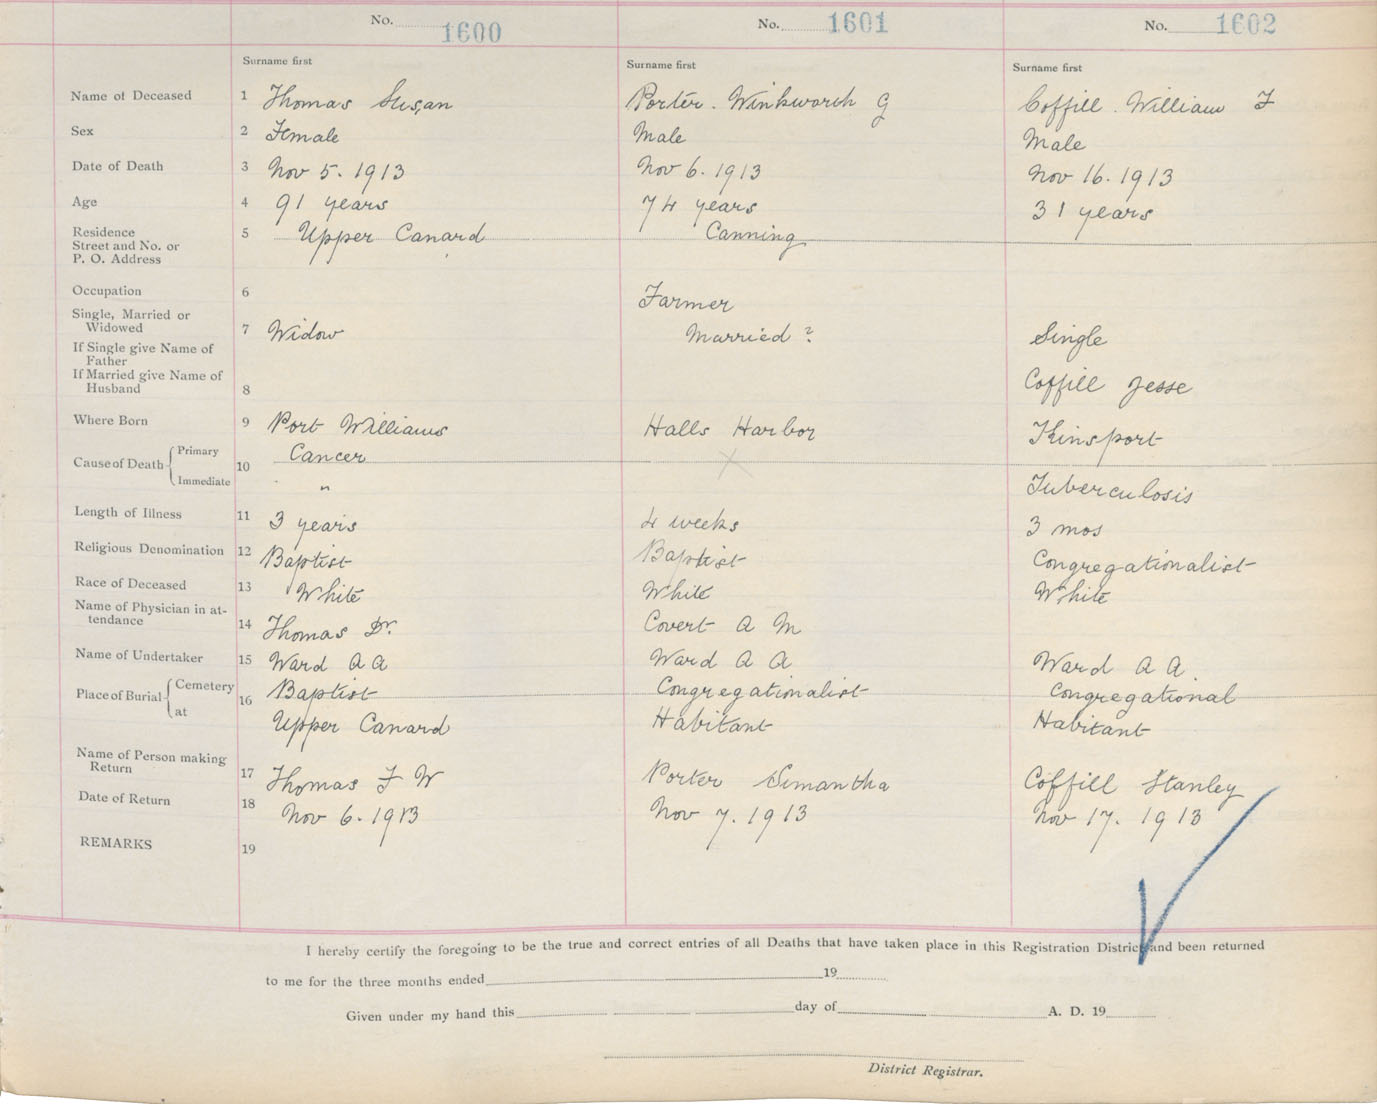 No. 1600 No. 1601 No. 1602
Surname first Surname first Surname first
Name of Deceased 1 Thomas Susan Porter. Winkworth G Coffill. William F
Sex 2 Female Male Male
Date of Death 3 Nov 5. 1913 Nov 6. 1913 Nov 16. 1913
Age 4 91 years 74 years 31 years
Residence
Street and No. or 5 Upper Canard Canning
P. O. Address
Occupation 6 Farmer
Single, Married or
Widowed 7 Widow Married ? Single
If Single give Name of
Father
If Married give Name of
Husband 8 Coffill Jesse
Where Born 9 Port Williams Halls Harbor Kinsport
Cause of Death Primary 10 Cancer X
Immediate " Tuberculosis
Length of Illness 11 3 years 4 weeks 3 mos
Religious Denomination 12 Baptist Baptist Congregationalist
Race of Deceased 13 White White White
Name of Physician in at-
tendance 14 Thomas Dr. Covert A M
Name of Undertaker 15 Ward A A Ward A A Ward A A.
Place of Burial Cemetery 16 Baptist Congregationalist Congregational
at Upper Canard Habitant Habitant
Name of Person making
Return 17 Thomas F W Porter Simantha Coffill Stanley
Date of Return 18 Nov 6. 1913 Nov 7. 1913 Nov 17. 1913
REMARKS 19
I hereby certify the foregoing to be the true and correct entries of all Deaths that have taken place in this Registration District and been returned
to me for the three months ended 19
Given under my hand this day of A. D. 19
District Registrar.